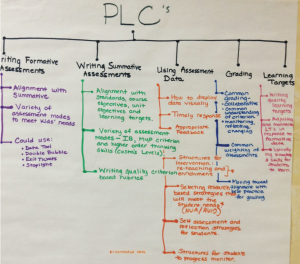 PLC's
riting Formative
Assessments
Alignment with
Summative
Variety of
assessment modes
to meet kids' needs
Could use:
Data Tool
Double Bubble
Exit tickets
Stoplight
Writing Summative
Assessments
Alignment with
standards, course
objectives, unit
objectives and
learning targets.
Variety of assessment
modes - IB, MAP criteria
and higher order thinking
skills (Costa's Levels)
Writing quality criterion
based rubrics
Using Assessment
Data
How to display
data visually
Timely response
Appropriate
Feedback
Structures for
intervention /
re-teaching and
enrichment
Selecting research
based strategies that
will meet the
student needs
Self assessment and
reflection strategies
for students
Structures for students
to progress monitor
Grading
Common
grading-
collaborative
Common
understanding
of criterion,
monitoring,
reflecting,
changing
Common
weighting of
assessments
Moving toward
alignment with
best practice
for grading
Learning
Targets
Writing
quality
learning
targets